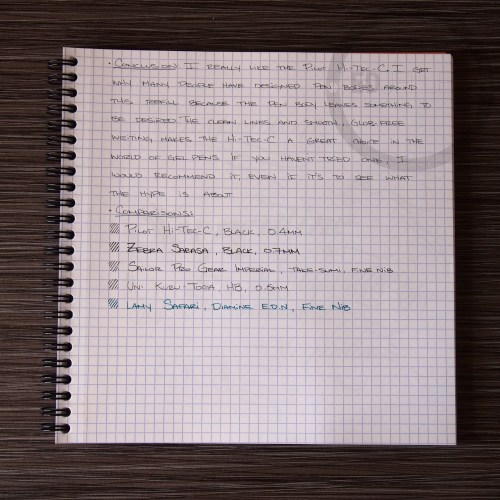 · Conclusion: I really like the Pilot Hi-Tec-C. I get
why many people have designed pen bodies around
this refill because the pen body leaves something to
be desired. The clean lines and smooth, glob-free
writing makes the Hi-Tec-C a great choice in the
world of gel pens. If you haven't tried one, I
would recommend it, even if it's to see what
the hype is about
· Comparisons:
Pilot Hi-Tec-C, Black, 0.4mm
Zebra Sarasa, Black, 0.7mm
Sailor Pro Gear Imperial, Take-Sumi, Fine Nib
Uni Kuru Toga, HB, 0.5mm
Lamy Safari, Diamine E.D.N, Fine Nib